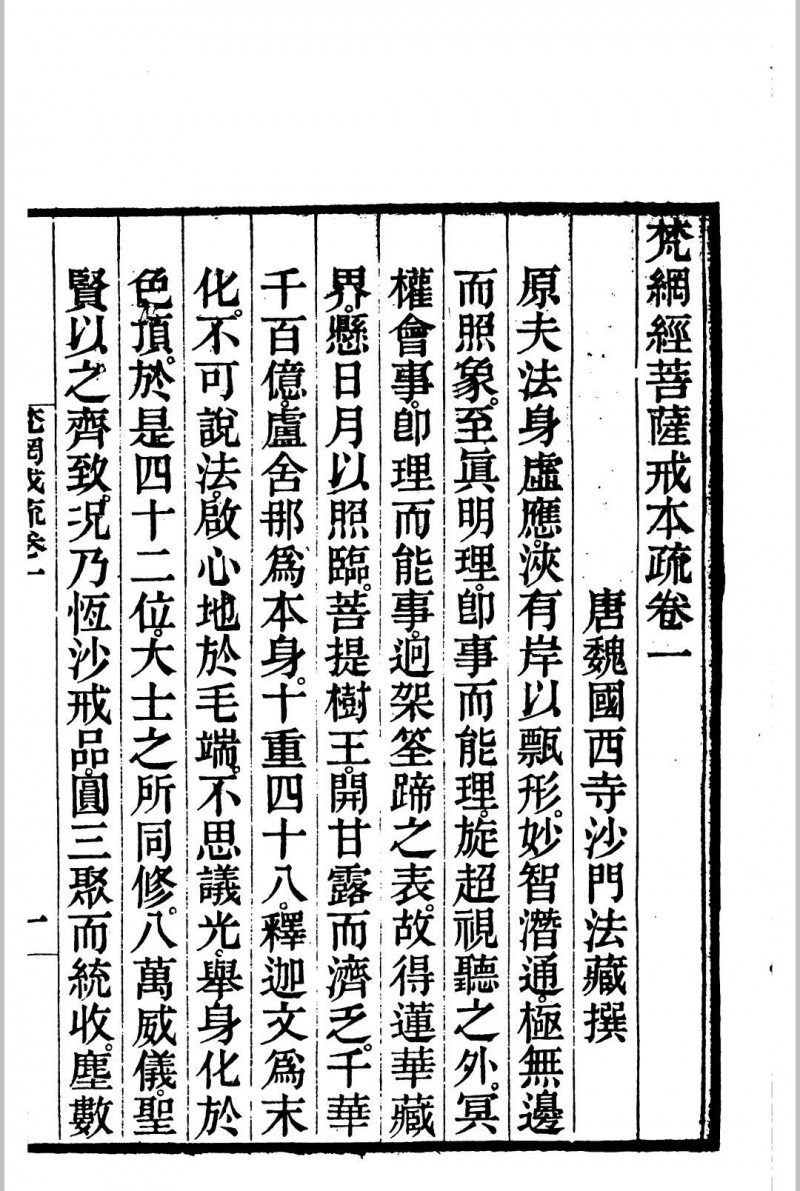 梵網經菩薩戒本疏卷一
唐魏國西寺沙門法藏撰
原夫法身虛應。浹有岸以甄形。妙智潛通。極無邊
而照象。至眞明理。卽事而能理。旋超視聽之外。冥
權會事。卽理而能事。迥架筌蹄之表。故得蓮華藏
界。懸日月以照臨。菩提樹王。開甘露而濟乏。千華
千百億。盧舍那爲本身。十重四十八。釋迦文爲末
化。不可說法。啟心地於毛端。不思議光。舉身化於
色頂。於是四十二位。大士之所同修。八萬威儀。聖
賢以之齊致。況乃恆沙戒品。圓三聚而統收。塵數
梵網戒疏卷一
一